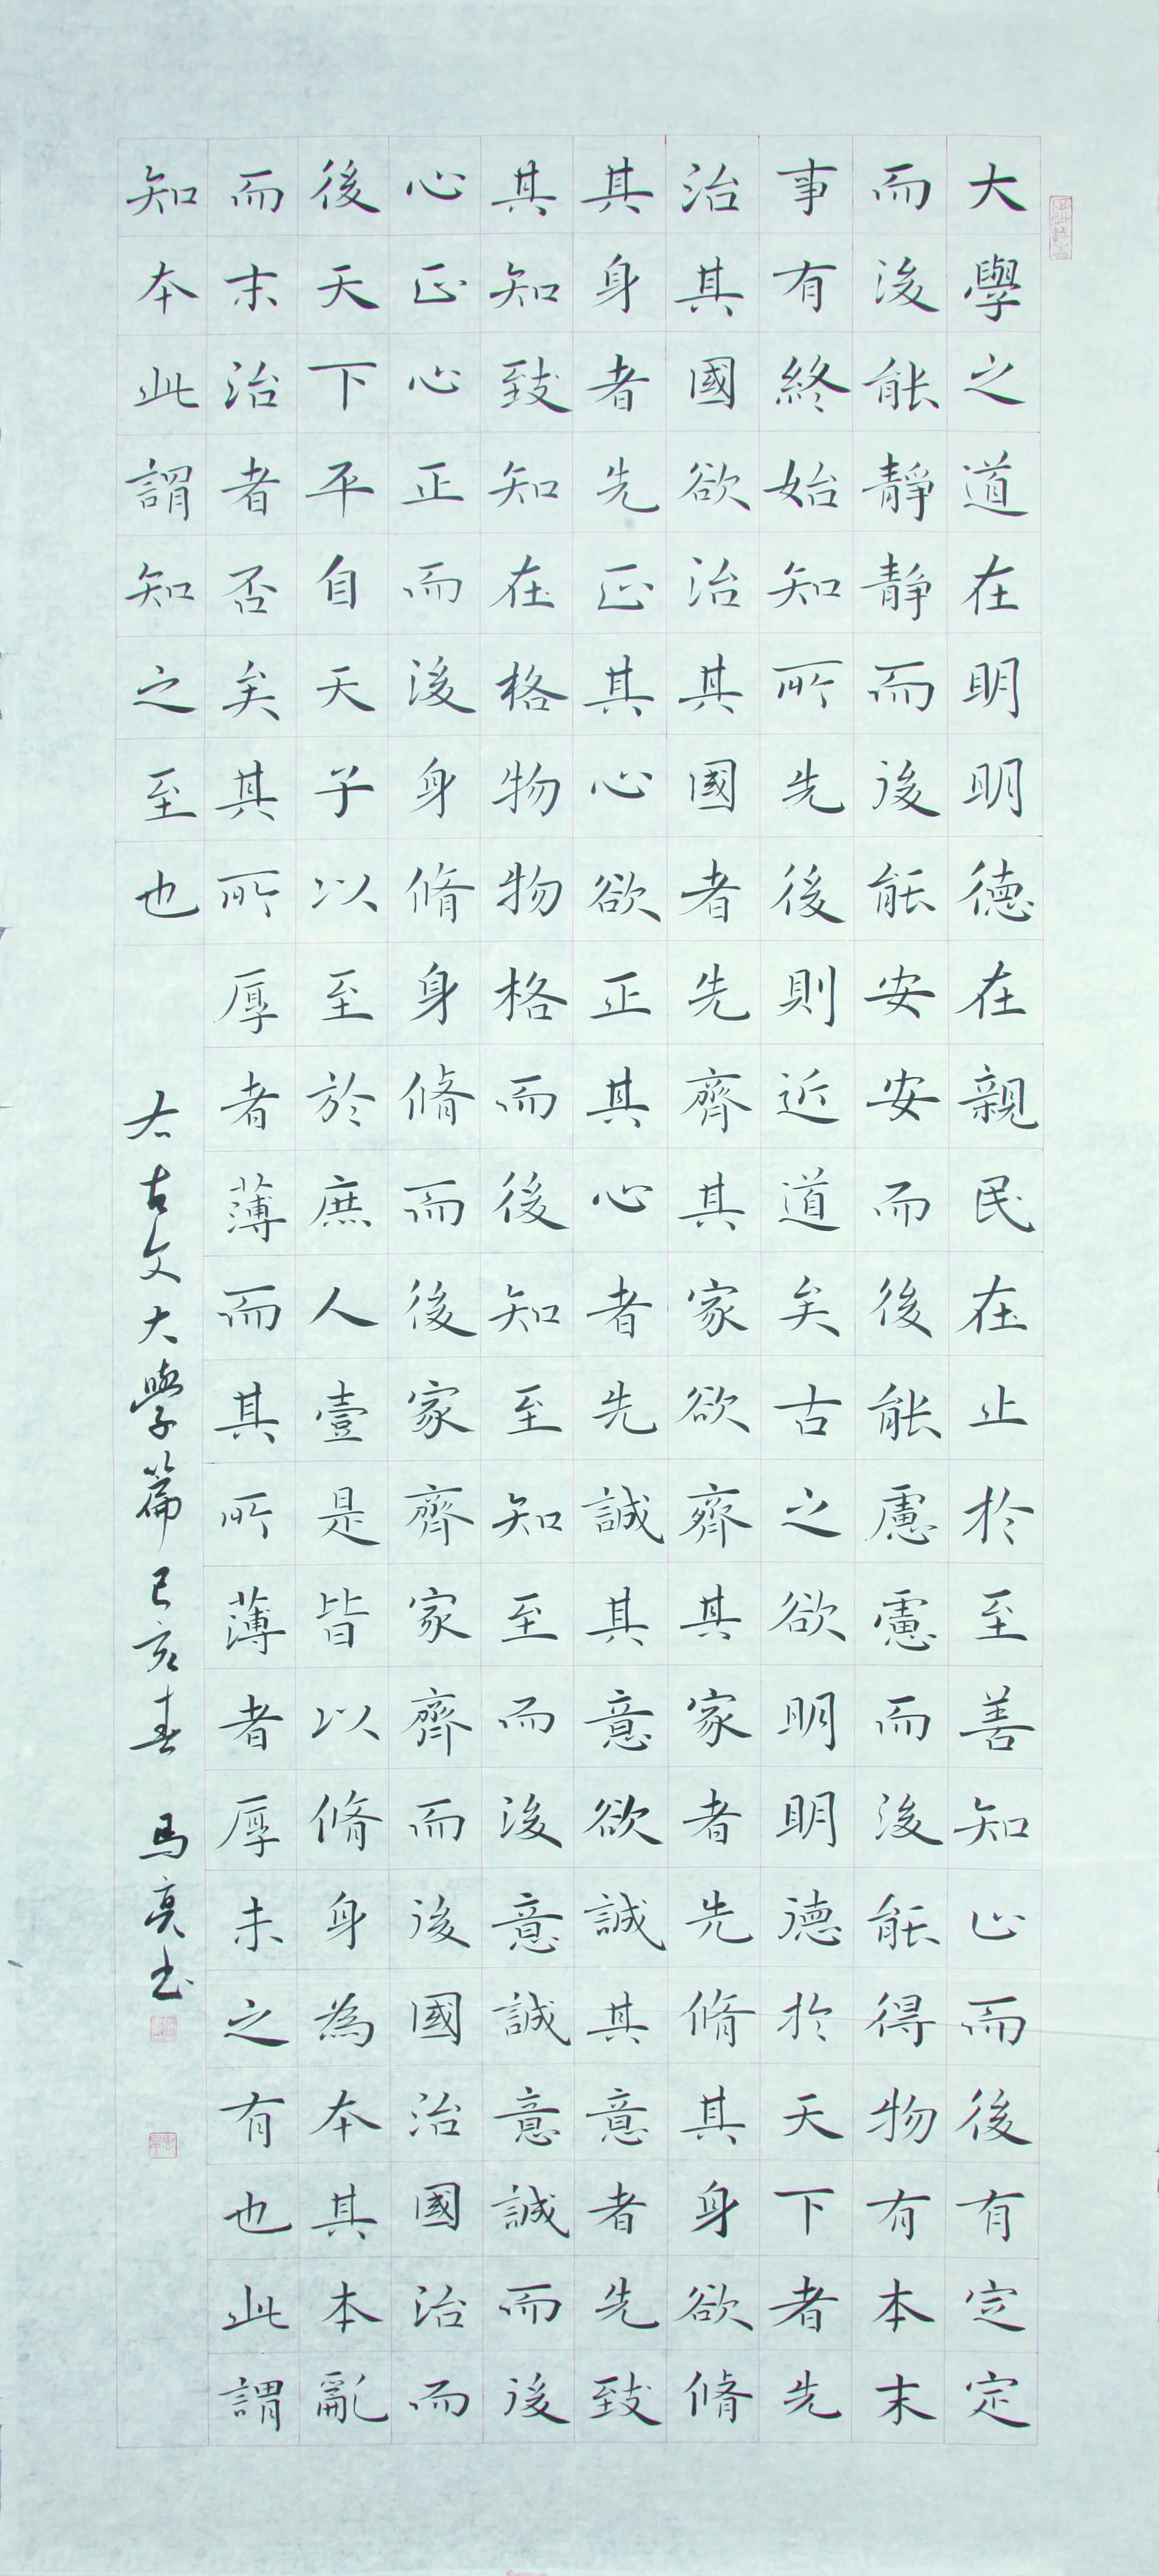 大學之道在明明德在親民在止於至善知止而後有定定
而後能靜靜而後能安安而後能慮慮而後能得物有本末
事有終始知所先後則近道矣古之欲明明德於天下者先
治其國欲治其國者先齊其家欲齊其家者先脩其身欲脩
其身者先正其心欲正其心者先誠其意欲誠其意者先致
其知致知在格物物格而後知至知至而後意誠意誠而後
心正心正而後身脩身脩而後家齊家齊而後國治國治而
後天下平自天子以至於庶人壹是皆以脩身為本其本亂
而末治者否矣其所厚者薄而其所薄者厚未之有也此謂
知本此謂知之至也
右古文大學篇己亥春 馬亮書